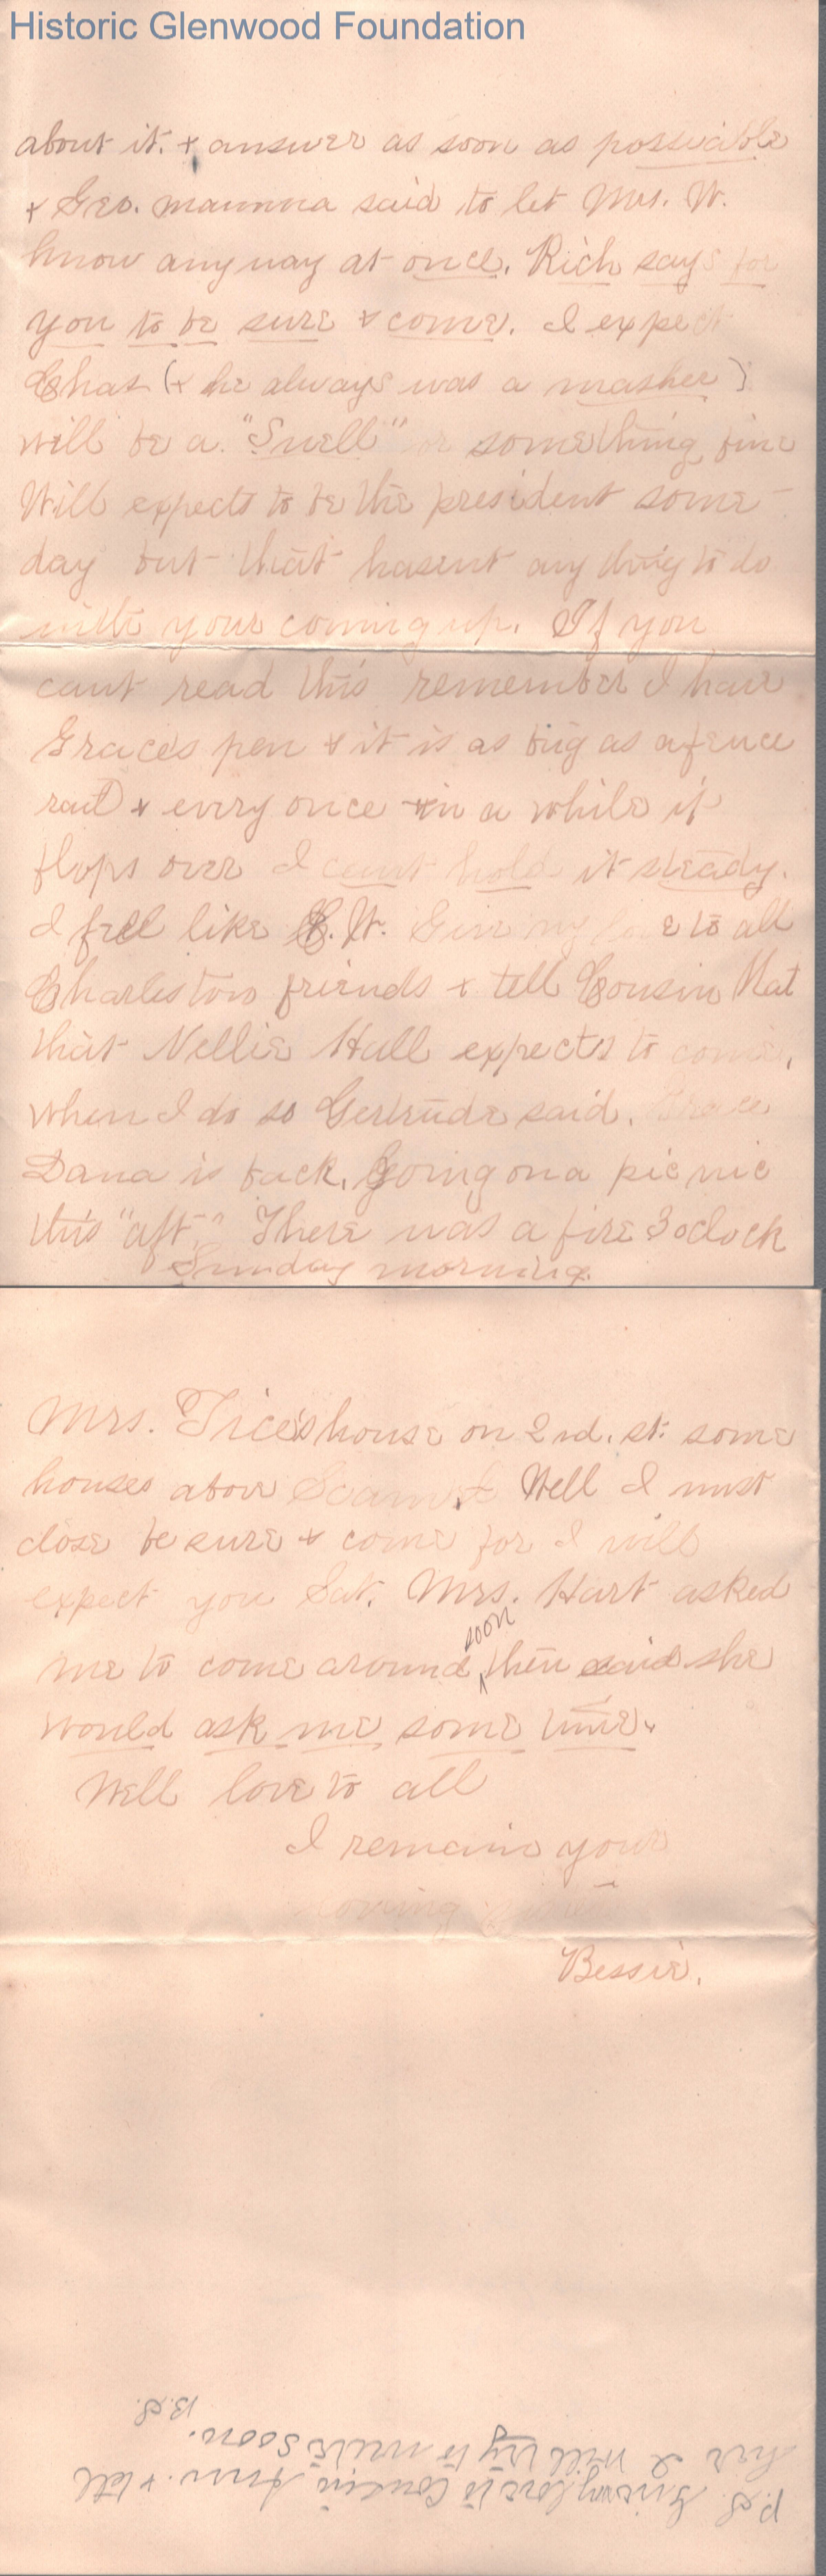 Historic Glenwood Foundation
about it. + answer as soon as possiable
+ Geo. mamma said to let Mrs. W.
know any way at once. Rich says for
you to be sure & come. I expect
Chas (+ he always was a masher)
will be a "Swell" or something fine
Will expects to be the president some-
day but that hasent any thing to do
with your coming up. If you
cant read this remember I have
Grace's pen & it is as big as a fence
rail & every once in a while it
flops over I cant hold it steady.
I feel like G. W. Give my love to all
Charleston friends + tell Cousin Nat
that Nellie Hall expects to come,
when I do so Gertrude said. Grace
Dana is back. Going on a pic nic
this "aft." There was a fire 3 oclock
Sunday morning.
Mrs. Tice's house on 2nd. st. some
houses above Well I must
close be sure & come for I will
expect you Sat. Mrs. Hart asked
me to come around soon then said she
would ask me some time.
Well love to all
I remain your
loving
Bessie.
P.S. Give my love to Cousin Ann. + tell
her I will try to write soon.
B.S.